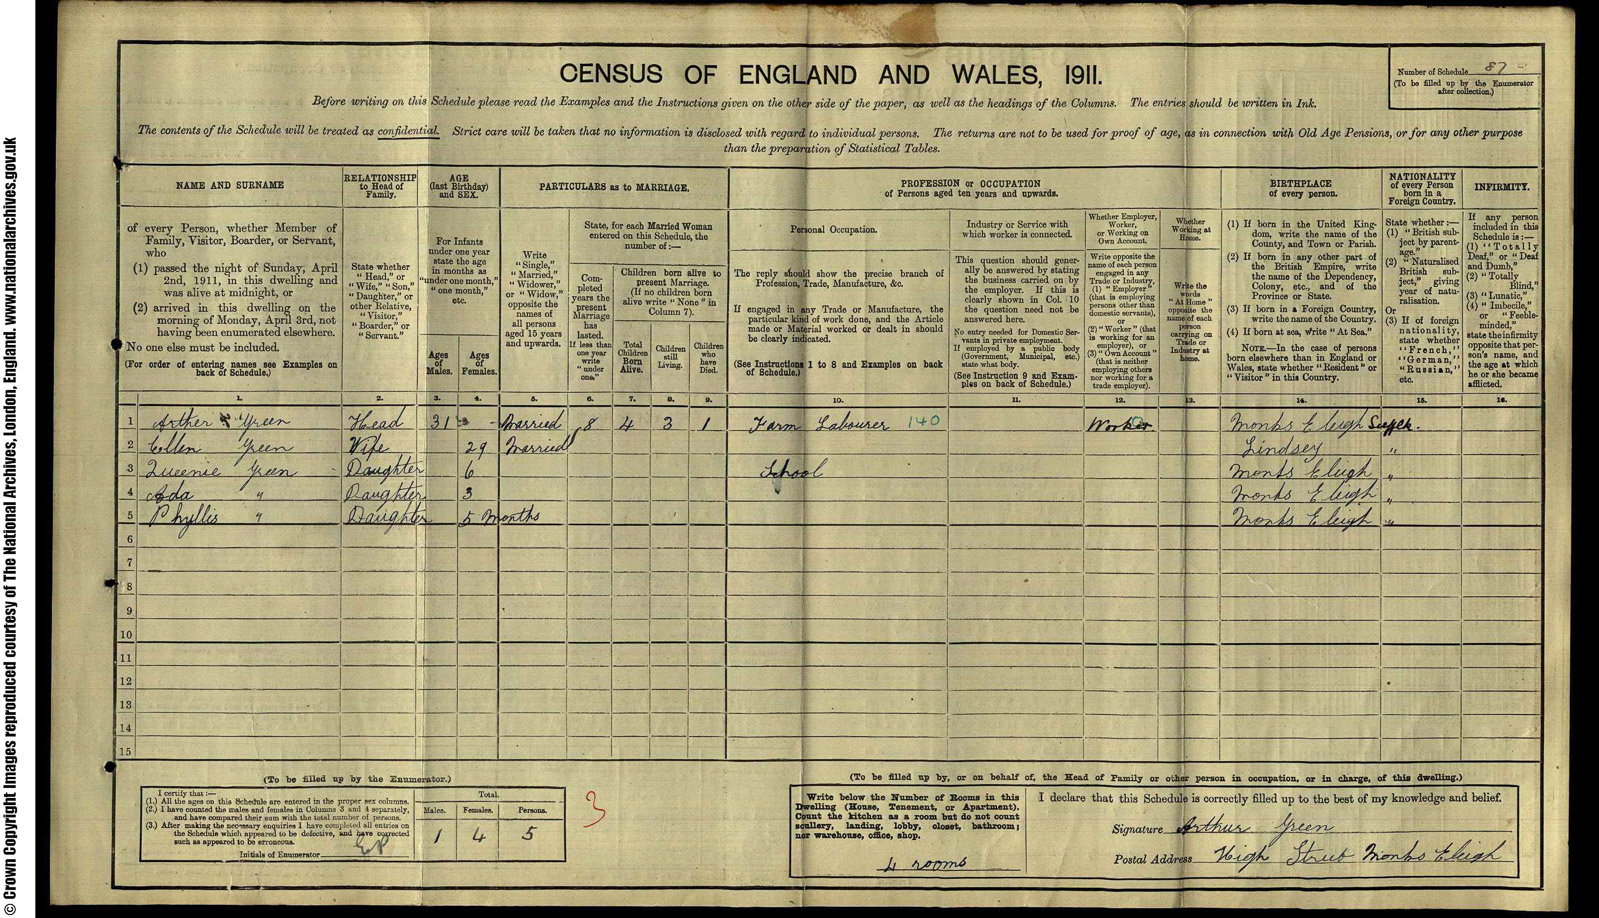 CENSUS OF ENGLAND AND WALES, 1911.
Number of Schedule 87
(To be filled up by the Enumerator
after collection.)
Before writing on this Schedule please read the Examples and the Instructions given on the other side of the paper, as well as the headings of the Columns. The entries should be written in Ink.
The contents of the Schedule will be treated as confidential. Strict care will be taken that no information is disclosed with regard to individual persons. The returns are not to be used for proof of age, as in connection with Old Age Pensions, or for any other purpose
than the preparation of Statistical Tables.
NAME AND SURNAME
of every Person, whether Member of
Family, Visitor, Boarder, or Servant,
who
(1) passed the night of Sunday, April
2nd, 1911, in this dwelling and
was alive at midnight, or
(2) arrived in this dwelling on the
morning of Monday, April 3rd, not
having been enumerated elsewhere.
No one else must be included.
(For order of entering names see Examples on
back of Schedule.)
RELATIONSHIP
to Head of
Family.
State whether
"Head," or
"Wife," "Son,"
"Daughter," or
other Relative,
"Visitor,"
"Boarder," or
"Servant."
AGE
(last Birthday)
and SEX.
For Infants
under one year
state the age
in months as
"under one month,"
"one month,"
etc.
Ages
of
Males.
Ages
of
Females.
PARTICULARS as to MARRIAGE.
Write
"Single,"
"Married,"
"Widower,"
or "Widow,"
opposite the
names of
all persons
aged 15 years
and upwards.
State, for each Married Woman
entered on this Schedule, the
number of:—
Com-
pleted
years the
present
Marriage
has
lasted.
If less than
one year
write
"under
one."
Children born alive to
present Marriage.
(If no children born
alive write "None" in
Column 7).
Total
Children
Born
Alive.
Children
still
Living.
Children
who
have
Died.
PROFESSION or OCCUPATION
of Persons aged ten years and upwards.
Personal Occupation.
The reply should show the precise branch of
Profession, Trade, Manufacture, &c.
If engaged in any Trade or Manufacture, the
particular kind of work done, and the Article
made or Material worked or dealt in should
be clearly indicated.
(See Instructions 1 to 8 and Examples on back
of Schedule.)
Industry or Service with
which worker is connected.
This question should gener-
ally be answered by stating
the business carried on by
the employer. If this is
clearly shown in Col. 10
the question need not be
answered here.
No entry needed for Domestic Ser-
vants in private employment.
If employed by a public body
(Government, Municipal, etc.)
state what body.
(See Instruction 9 and Exam-
ples on back of Schedule.)
Whether Employer,
Worker,
or Working on
Own Account.
Write opposite the
name of each person
engaged in any
Trade or Industry,
(1) "Employer"
(that is employing
persons other than
domestic servants),
or
(2) "Worker" (that
is working for an
employer), or
(3) "Own Account"
(that is neither
employing others
nor working for a
trade employer).
Whether
Working at
Home.
Write the
words
"At Home"
opposite the
name of each
person
carrying on
Trade or
Industry at
home.
BIRTHPLACE
of every person.
(1) If born in the United King-
dom, write the name of the
County, and Town or Parish.
(2) If born in any other part of
the British Empire, write
the name of the Dependency,
Colony, etc., and of the
Province or State.
(3) If born in a Foreign Country,
write the name of the Country.
(4) If born at sea, write "At Sea."
NOTE.—In the case of persons
born elsewhere than in England or
Wales, state whether "Resident" or
"Visitor" in this Country.
NATIONALITY
of every Person
born in a
Foreign Country.
State whether:—
(1) "British sub-
ject by parent-
age."
(2) "Naturalised
British sub-
ject," giving
year of natu-
ralisation.
Or
(3) If of foreign
nationality,
state whether
"French,"
"German,"
"Russian,"
etc.
INFIRMITY.
If any person
included in this
Schedule is:—
(1) "Totally
Deaf," or "Deaf
and Dumb,"
(2) "Totally
Blind,"
(3) "Lunatic,"
(4) "Imbecile,"
or "Feeble-
minded,"
state the infirmity
opposite that per-
son's name, and
the age at which
he or she became
afflicted.
1. 2. 3. 4. 5. 6. 7. 8. 9. 10. 11. 12. 13. 14. 15. 16.
1 Arther Green Head 31 - Married 8 4 3 1 Farm Labourer 140 Worker Monks Eleigh Suffolk.
2 Ellen Green Wife 29 Married Lindsey "
3 Queenie Green Daughter 6 School Monks Eleigh "
4 Ada " Daughter 3 Monks Eleigh "
5 Phyllis " Daughter 5 months Monks Eleigh "
6
7
8
9
10
11
12
13
14
15
(To be filled up by the Enumerator.)
I certify that:—
(1.) All the ages on this Schedule are entered in the proper sex columns.
(2.) I have counted the males and females in Columns 3 and 4 separately,
and have compared their sum with the total number of persons.
(3.) After making the necessary enquiries I have completed all entries on
the Schedule which appeared to be defective, and have corrected
such as appeared to be erroneous.
Initials of Enumerator EP
Total.
Males. Females. Persons.
1 4 5
3
(To be filled up by, or on behalf of, the Head of Family or other person in occupation, or in charge, of this dwelling.)
Write below the Number of Rooms in this
Dwelling (House, Tenement, or Apartment).
Count the kitchen as a room but do not count
scullery, landing, lobby, closet, bathroom;
nor warehouse, office, shop.
4 rooms
I declare that this Schedule is correctly filled up to the best of my knowledge and belief.
Signature Arthur Green
Postal Address High Street Monks Eleigh
© Crown Copyright Images reproduced courtesy of The National Archives, London, England. www.nationalarchives.gov.uk